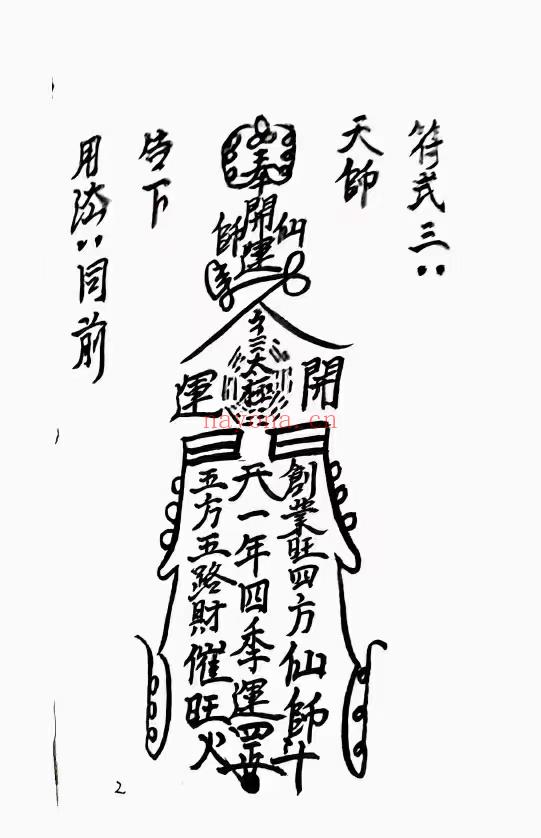 符式三：
天師
奉
開運
仙師
太極
開運
創業旺四方仙師
一年四季運
五方五路財催旺火
告下
用法：同前
nayona.cn
2